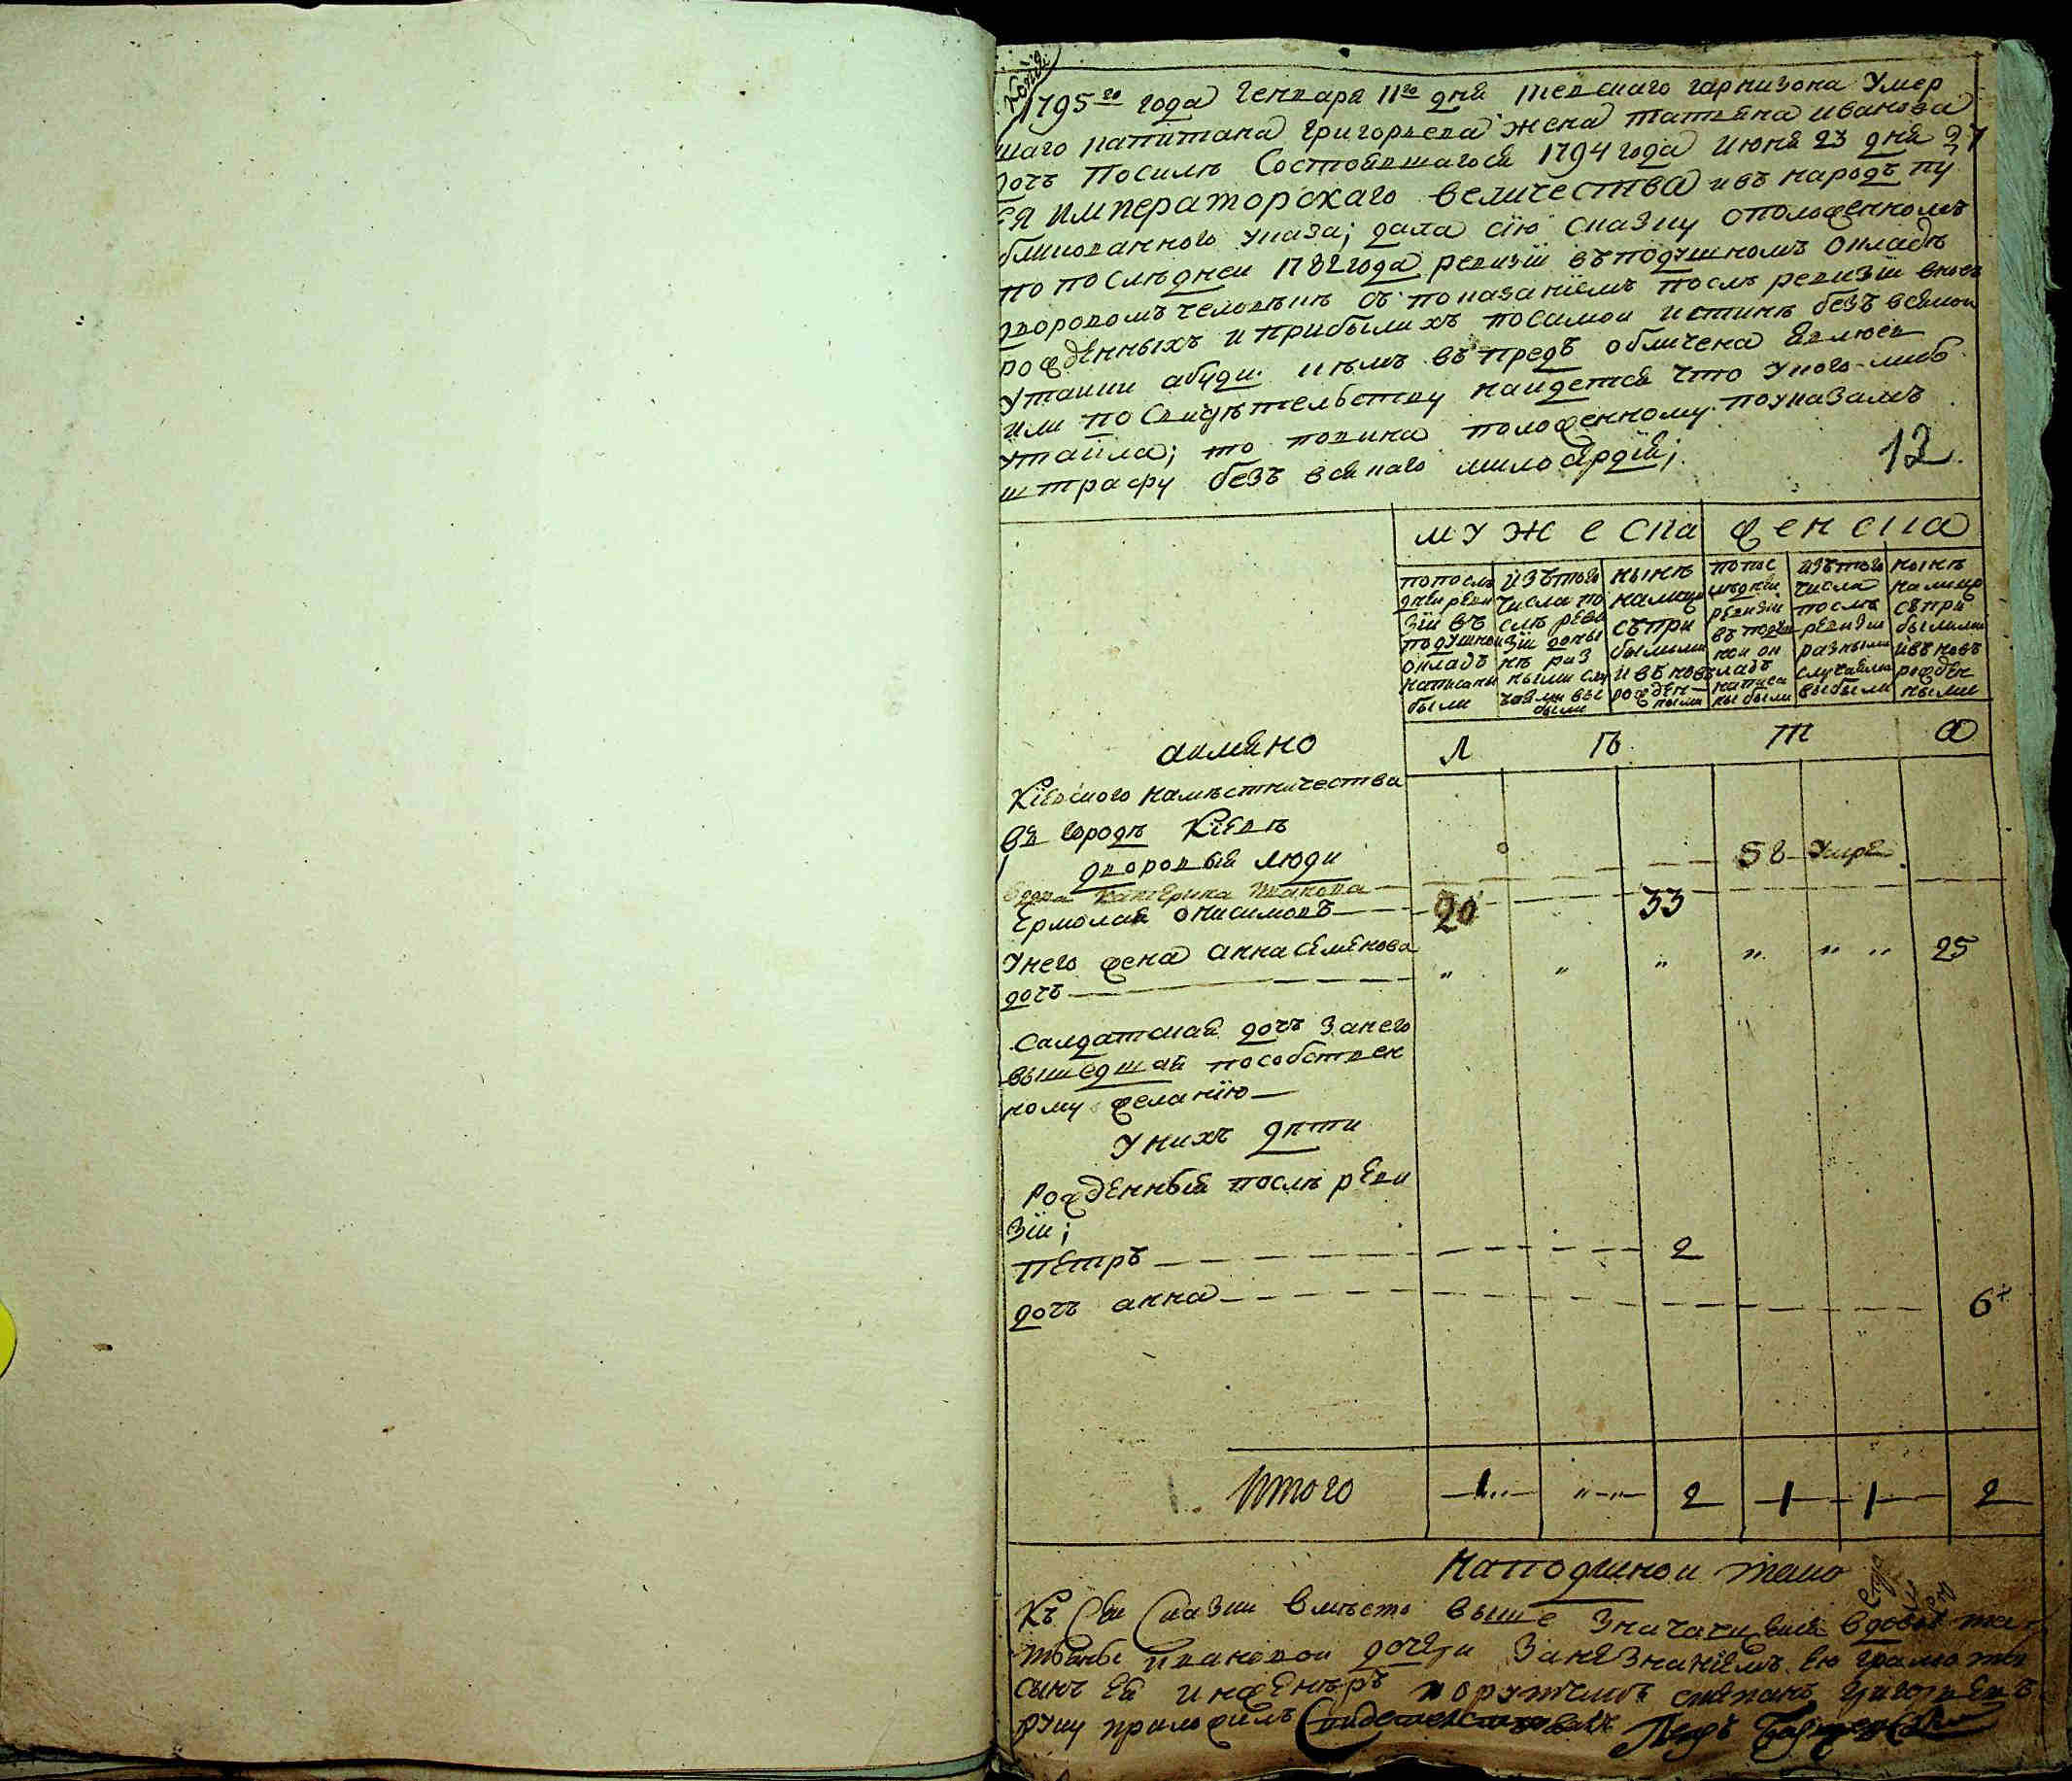 Копія
1795го года Генваря 11го дня Киевскаго гарнизона Умер
шаго капитана Григорьева жена татьяна иванова
дочь Посилѣ Состоявшагося 1794 года июня 23 дня
ЕЯ ИмпЕраторскаго вЕличЕства ивъ народъ пу
бликованного указа; дала сїю сказку оположенномъ
по послѣднеи 1782 года ревизїи въподушномъ окладѣ
дворовомъ человѣкѣ съ показанїемъ послѣ ревизїи вновь
рожденныхъ и прибылихъ посамои истинѣ безъ всякои
утаики абуди кѣмъ въпредъ обличена явлюсь
или по свидѣтельству наидется что укого либо
утаила; то повина положенному поуказамъ
штрафу безъ всякаго милосЕрдїя;
12.
мужеска женска
попослѣ дней реви зїи въ подушном окладѣ написани были
изътого числа по слѣ реви зїи донынѣ раз ными слу чаями вы были
нынѣ налицо съпри былыми ивъновь рожден ными
попос лѣднѣи ревизїи въ подуш ном ок ладѣ написа ны были
изътого числа послѣ ревизїи разными случаями выбыли
нынѣ налицо съпри былыми ивъновь рожден ными
аимяно
Л ѣ т а
Кїевского намѣстничества
въ городѣ Кїевѣ
дворовыя люди
вдова катерина иванова 58 умре
Ермолай онисимовъ 20 33
Унего жена анна сЕмЕнова
дочь „ „ „ „ „ „ 25
Салдатская дочь занего
вышедшая пособствен
ному желанїю
Унихъ дѣти
Рожденныя послѣ рЕви
зїи;
пЕтръ 2
дочь анна 6
Итого 1 „ „ 2 1 1 2
Наподлинои тако
Къ Сеи Сказки вмѣсто выше значащейся вдовы та
тьяны ивановой дочери занезнанїемъ Ею грамоты
сынъ Ея инженЕръ порутчикъ степанъ григорьевъ
руку приложилъ